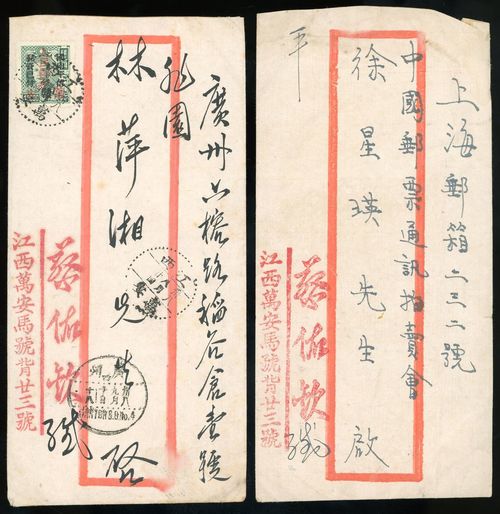 廣州六榕路稻谷倉壹號
林萍湘先生 啓
蔡佑欽 緘
江西萬安馬號背廿三號
上海郵箱六三二號
中國郵票通訊拍賣會
徐星瑛先生 啟
平
蔡佑欽 緘
江西萬安馬號背廿三號